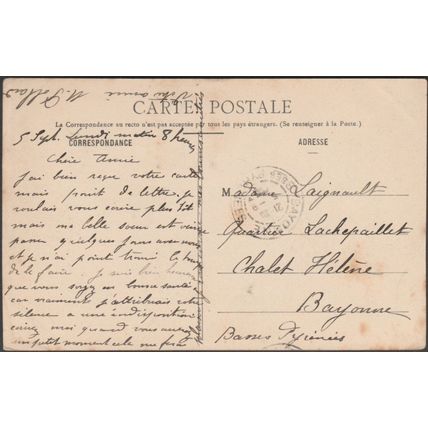 Votre amie
M. Follais
CARTE POSTALE
La Correspondance au recto n'est pas acceptée par tous les pays étrangers. (Se renseigner à la Poste.)
CORRESPONDANCE
ADRESSE
5 Sept. Lundi matin 8 heures
Chère Amie
J'ai bien reçu votre carte
mais point de lettre, je
voulais vous écrire plus tôt
mais ma belle sœur est venue
passer quelques jours avec nous
et je n'ai point trouvé le temps
de le faire. Je suis bien heureuse
que vous soyez en bonne santé,
car vraiment j'attribuais votre
silence a une indisposition
écrivez moi quand vous aurez
un petit moment cela me fera
Madame Laignault
Quartier Lachepaillet
Chalet Hélène
Bayonne
Basses Pyrénées